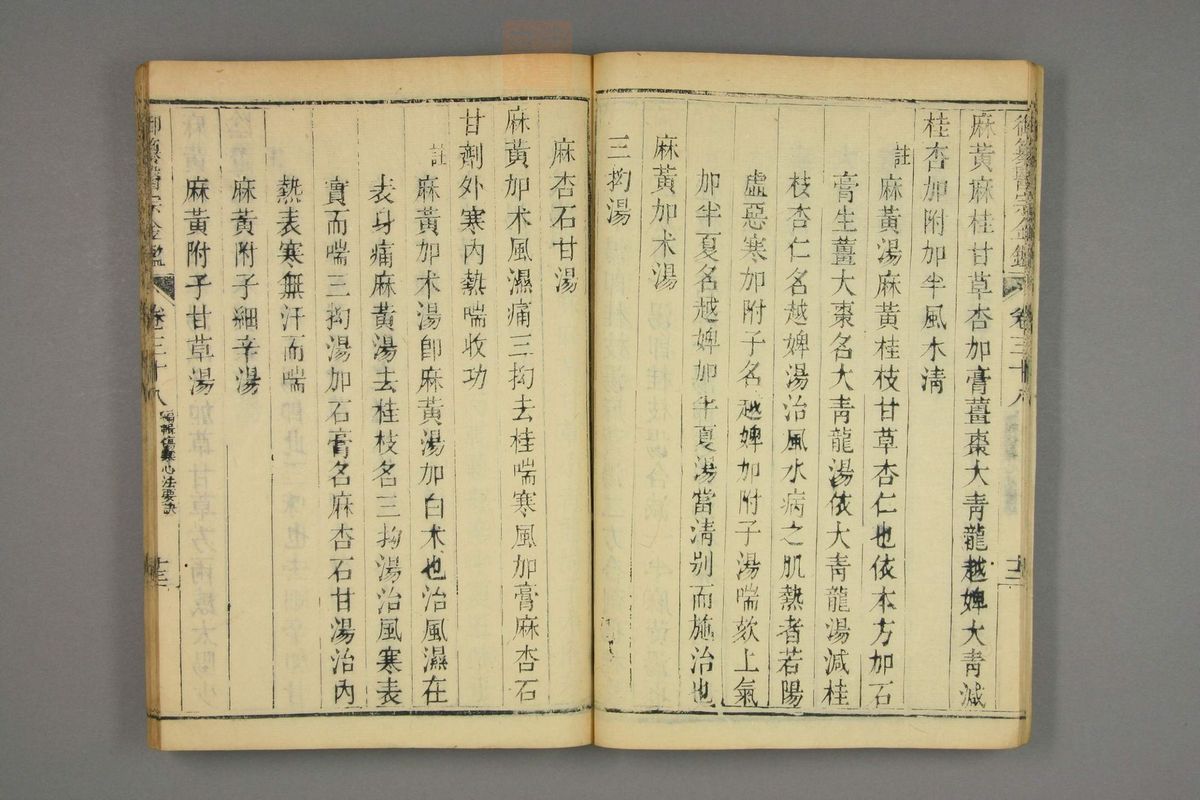 御纂醫宗金鑑 卷三十八
麻黃麻桂甘草杏加膏薑棗大青龍越婢大青減
桂杏加附加半風水淸
註
麻黃湯麻黃桂枝甘草杏仁也依本方加石
膏生薑大棗名大青龍湯依大青龍湯減桂
枝杏仁名越婢湯治風水病之肌熱者若陽
虛惡寒加附子名越婢加附子湯喘欬上氣
加半夏名越婢加半夏湯當清別而施治也
麻黃加术湯
三拗湯
麻杏石甘湯
麻黃加术風濕痛三拗去桂喘寒風加膏麻杏石
甘劑外寒內熱喘收功
註
麻黃加术湯卽麻黃湯加白术也治風濕在
表身痛麻黃湯去桂枝名三拗湯治風寒表
實而喘三拗湯加石膏名麻杏石甘湯治內
熱表寒無汗而喘
麻黃附子細辛湯
麻黃附子甘草湯
御纂醫宗金鑑 卷三十八 編輯傷寒心法要訣 十三